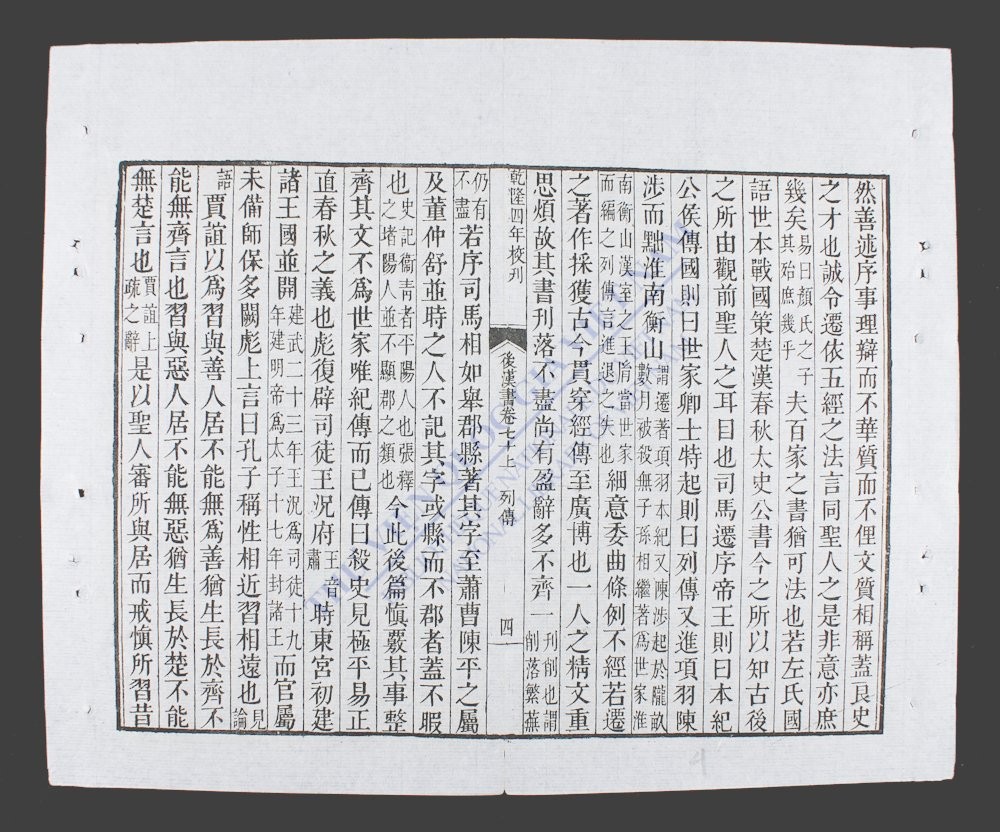 然善述序事理辯而不華質而不俚文質相稱蓋良史
之才也誠令遷依五經之法言同聖人之是非意亦庶
幾矣易曰顏氏之子其殆庶幾乎夫百家之書猶可法也若左氏國
語世本戰國策楚漢春秋太史公書今之所以知古後
之所由觀前聖人之耳目也司馬遷序帝王則曰本紀
公侯傳國則曰世家卿士特起則曰列傳又進項羽陳
涉而黜淮南衡山謂遷著項羽本紀又陳涉起於隴畝數月被殺無子孫相繼著爲世家淮
南衡山漢室之王胄當世家而編之列傳言進退之失也細意委曲條例不經若遷
之著作採獲古今貫穿經傳至廣博也一人之精文重
思煩故其書刊落不盡尚有盈辭多不齊一刊削也謂削落繁蕪
乾隆四年校刊
後漢書卷七十上 列傳 四
仍有不盡若序司馬相如舉郡縣著其字至蕭曹陳平之屬
及董仲舒並時之人不記其字或縣而不郡者蓋不暇
也史記衞青者平陽人也張釋之堵陽人並不顯郡之類也今此後篇愼覈其事整
齊其文不爲世家唯紀傳而已傳曰殺史見極平易正
直春秋之義也彪復辟司徒王況府王音肅時東宮初建
諸王國並開建武二十三年王況爲司徒十九年建明帝爲太子十七年封諸王而官屬
未備師保多闕彪上言曰孔子稱性相近習相遠也見論
語賈誼以爲習與善人居不能無爲善猶生長於齊不
能無齊言也習與惡人居不能無惡猶生長於楚不能
無楚言也賈誼上疏之辭是以聖人審所與居而戒愼所習昔